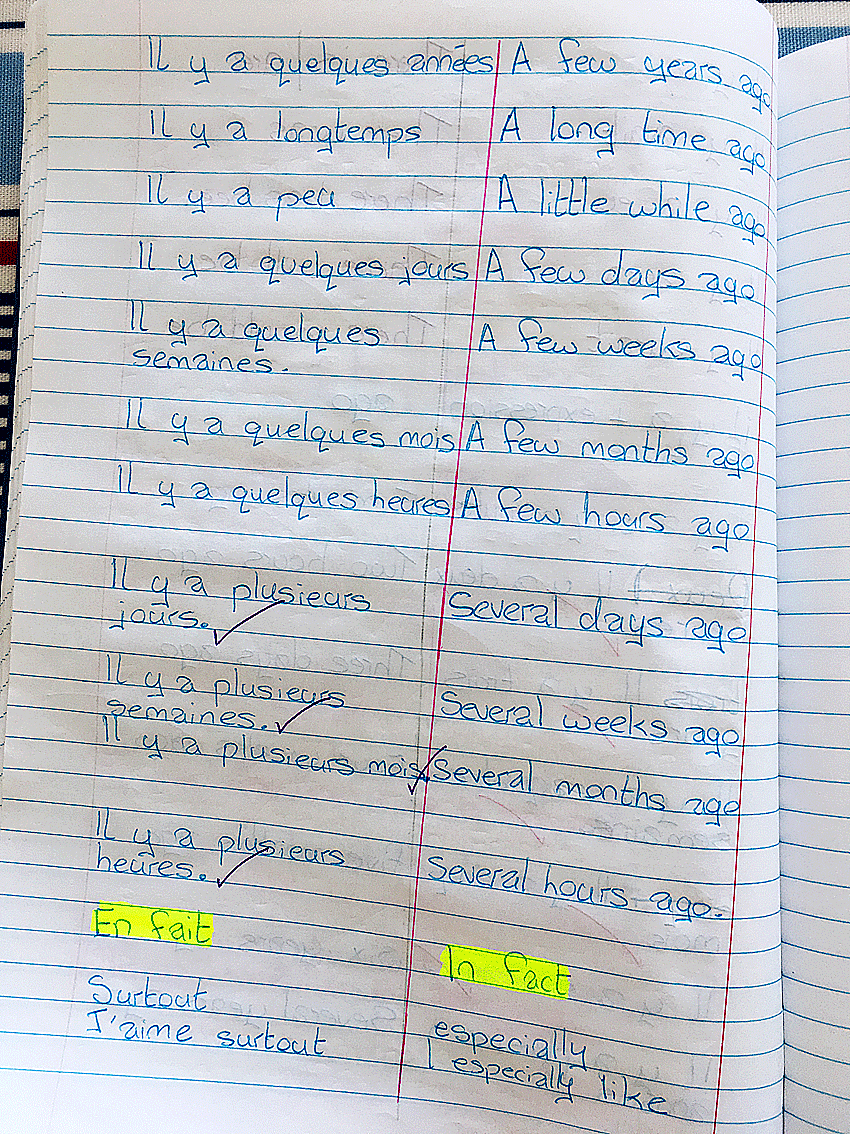 Il y a quelques années A few years ago
Il y a longtemps A long time ago
Il y a peu A little while ago
Il y a quelques jours A few days ago
Il y a quelques A few weeks ago
semaines.
Il y a quelques mois A few months ago
Il y a quelques heures A few hours ago
Il y a plusieurs Several days ago
jours.
Il y a plusieurs Several weeks ago
semaines.
Il y a plusieurs mois Several months ago
Il y a plusieurs Several hours ago.
heures.
En fait In fact
Surtout especially
J'aime surtout I especially like